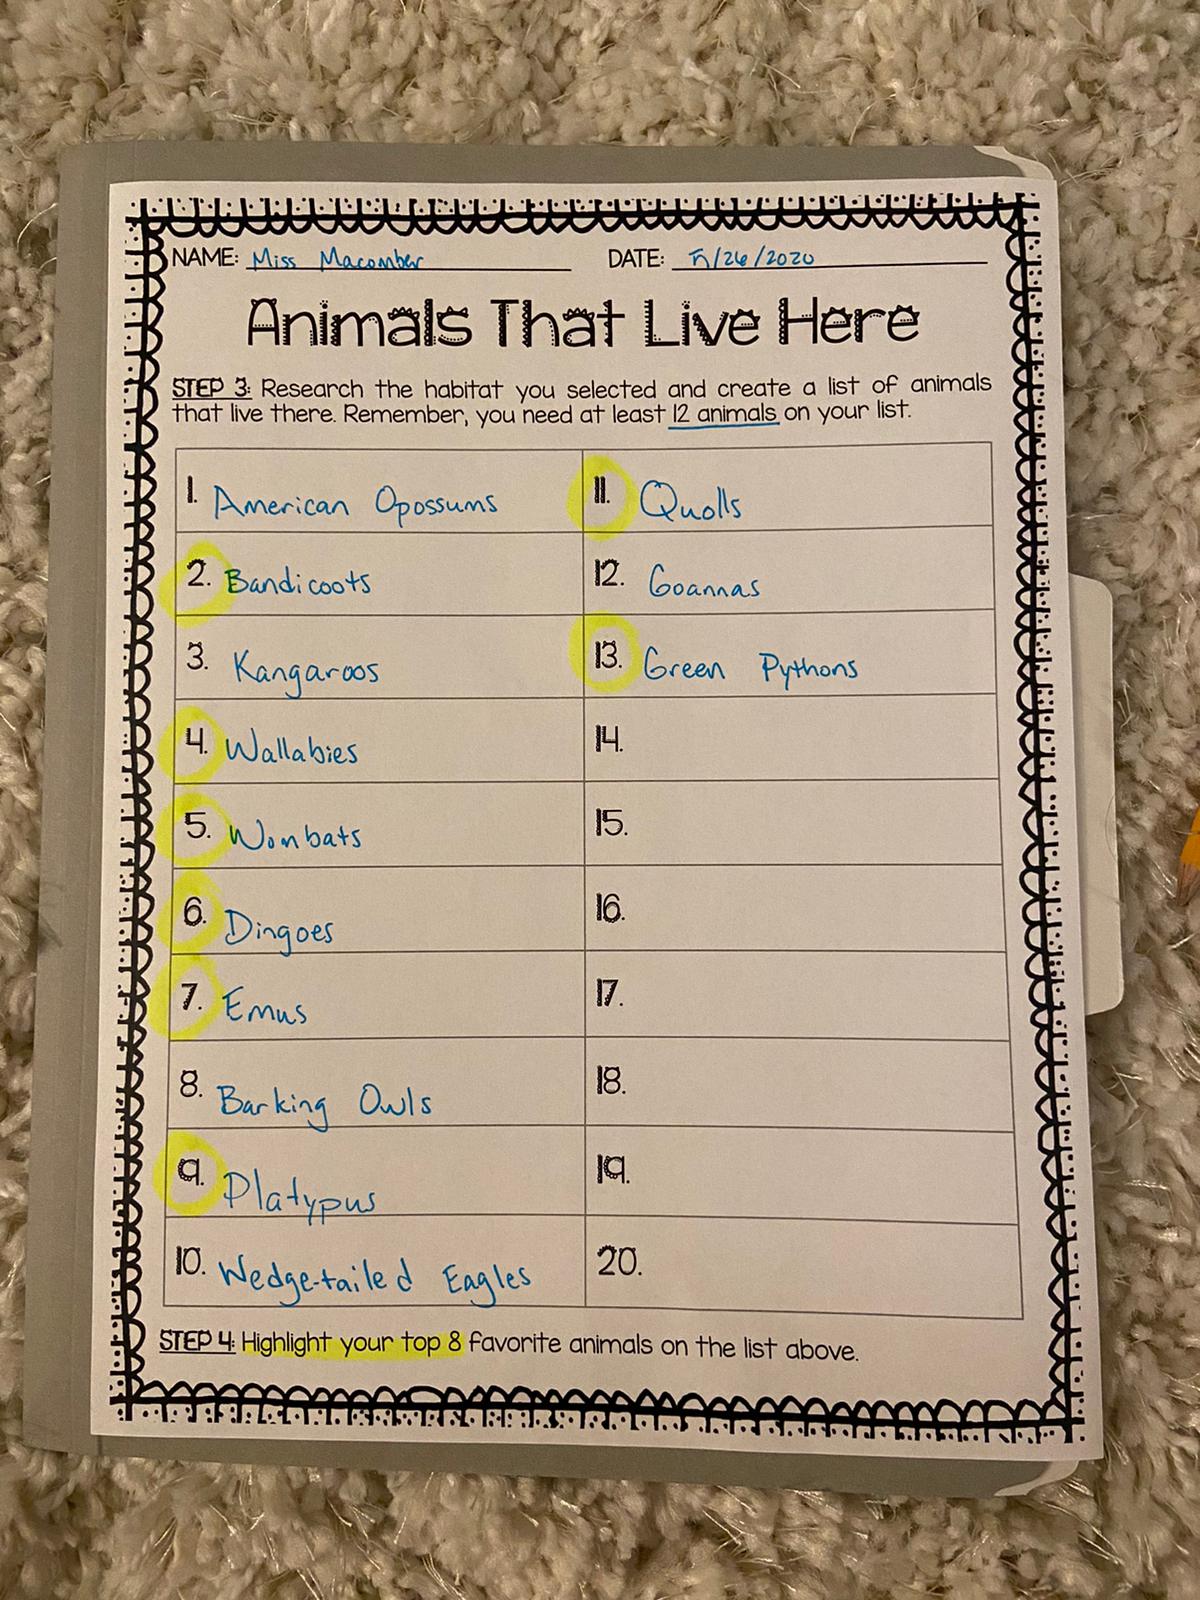 NAME: Miss Macomber DATE: 5/26/2020
Animals That Live Here
STEP 3: Research the habitat you selected and create a list of animals
that live there. Remember, you need at least 12 animals on your list.
1. American Opossums
2. Bandicoots
3. Kangaroos
4. Wallabies
5. Wombats
6. Dingoes
7. Emus
8. Barking Owls
9. Platypus
10. Wedge-tailed Eagles
11. Quolls
12. Goannas
13. Green Pythons
14.
15.
16.
17.
18.
19.
20.
STEP 4: Highlight your top 8 favorite animals on the list above.